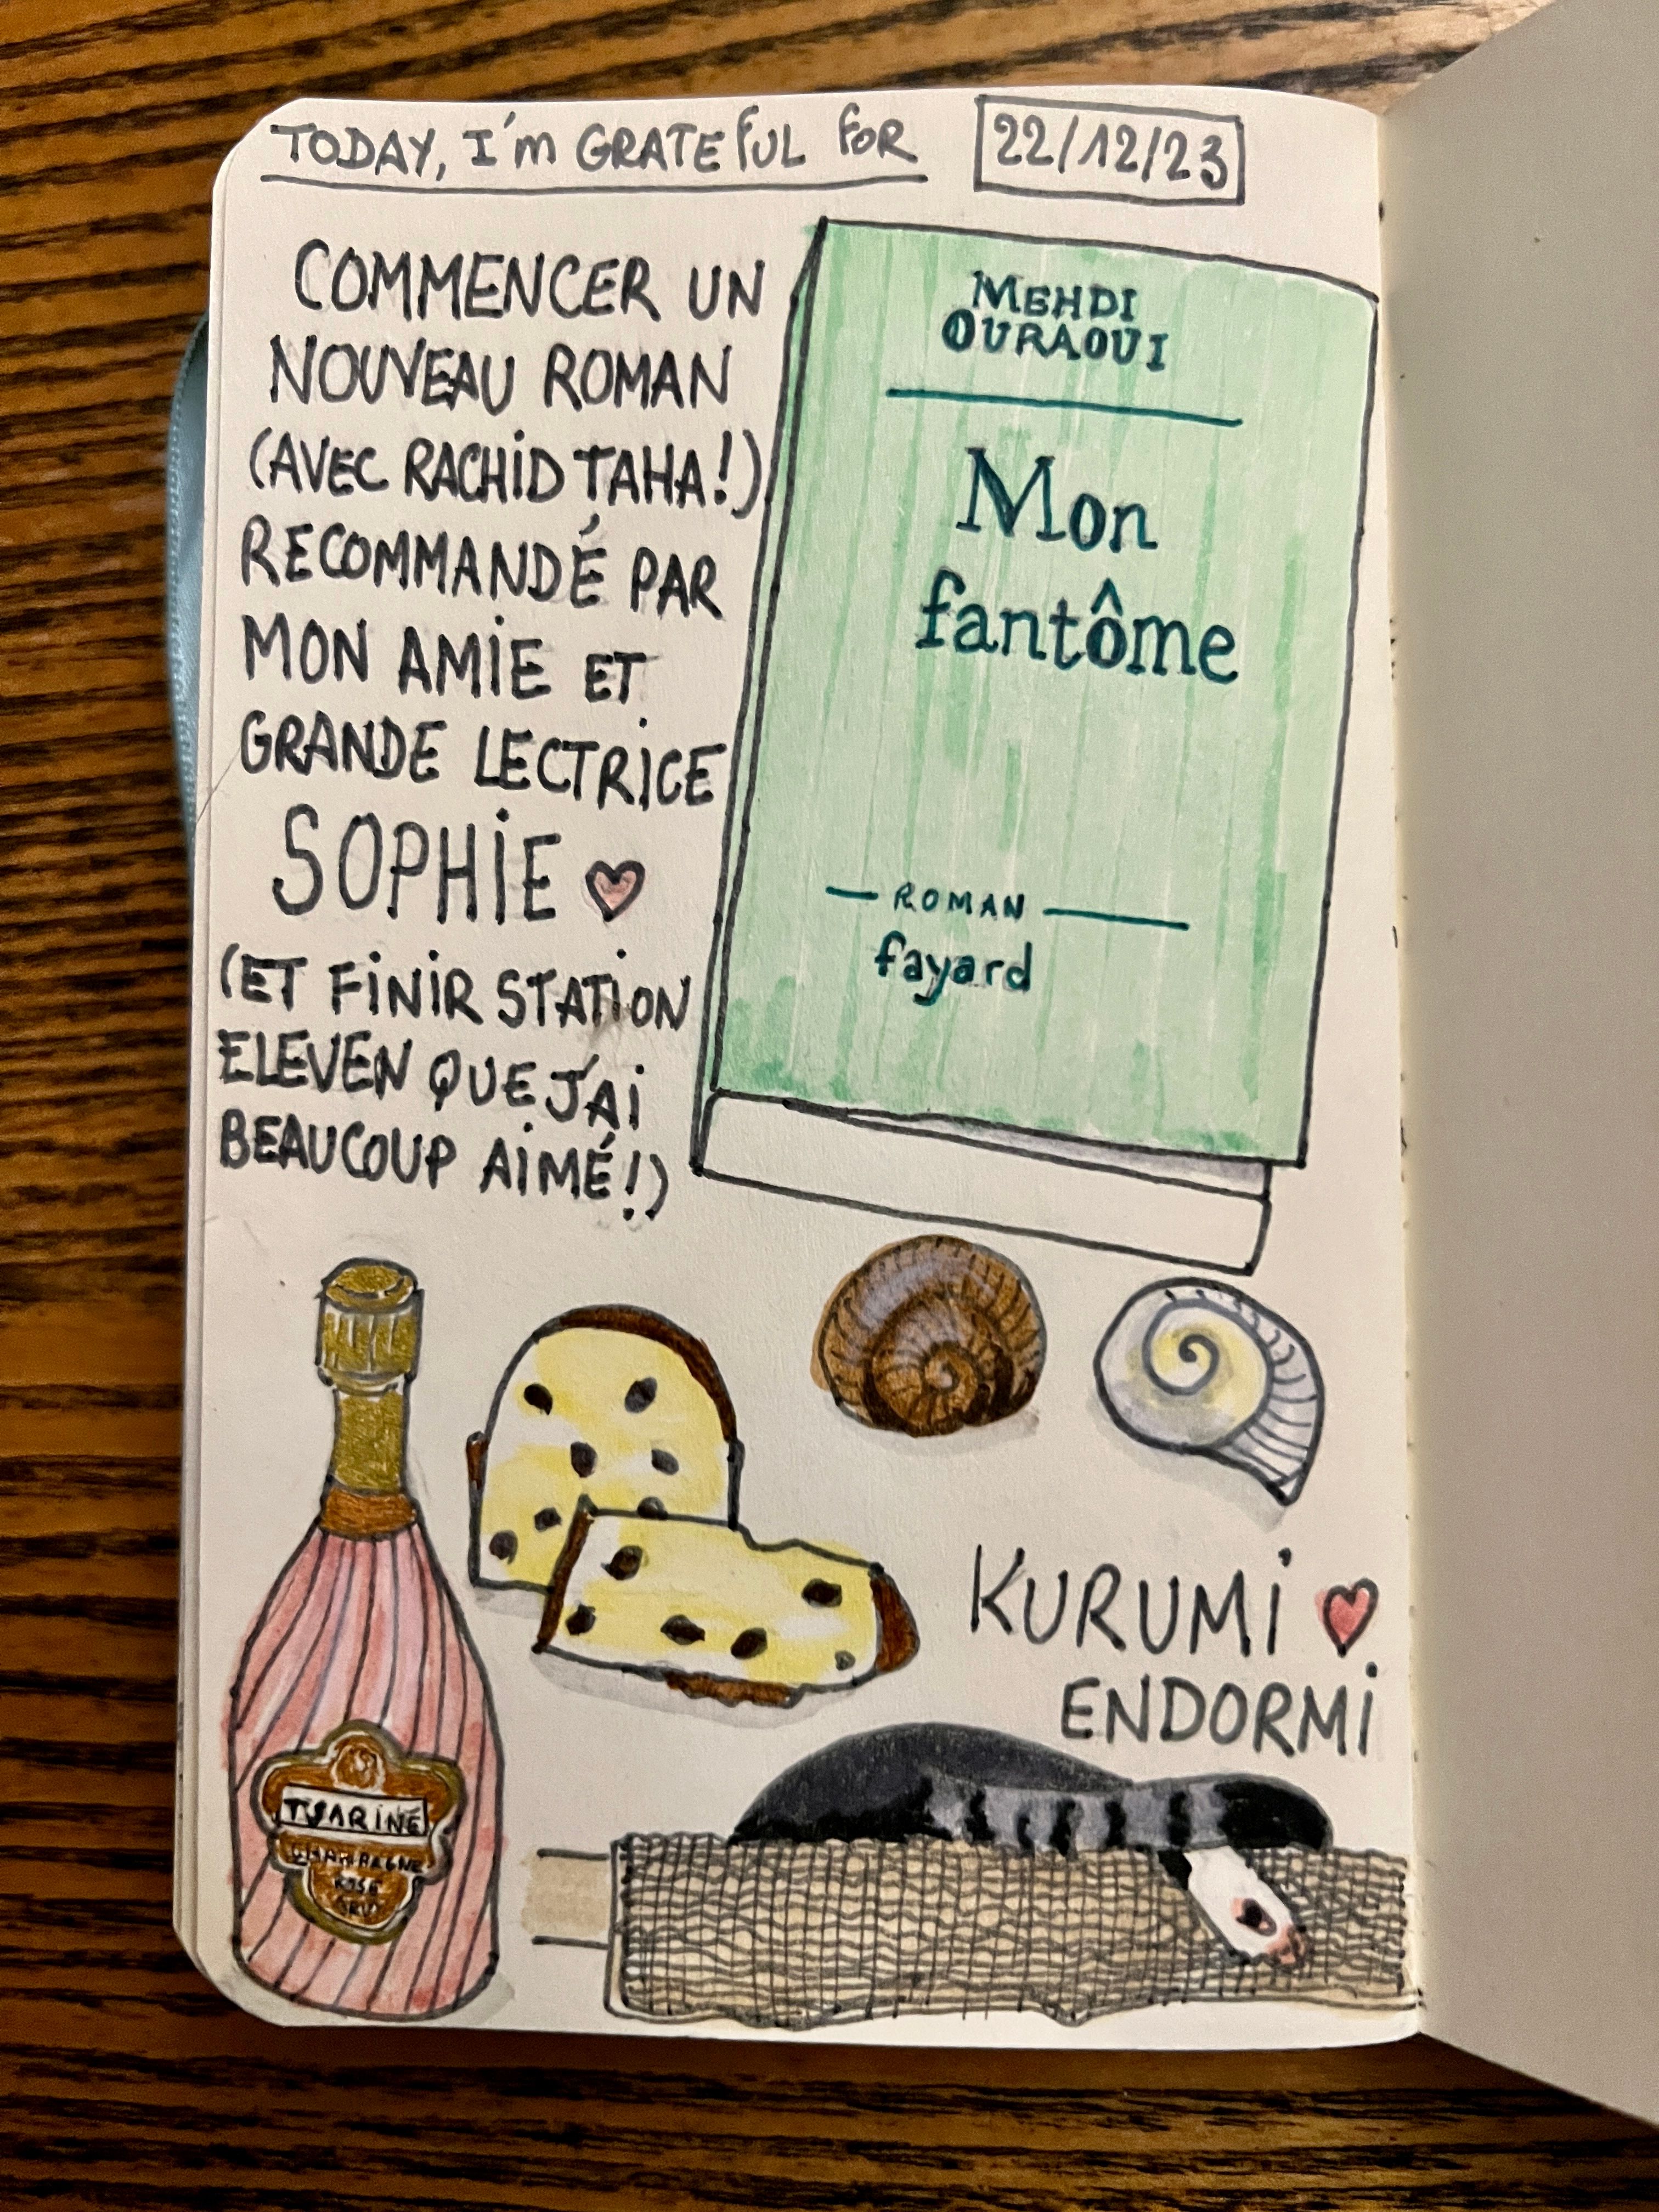 TODAY, I'm GRATEFUL FOR 22/12/23
COMMENCER UN
NOUVEAU ROMAN
(AVEC RACHID TAHA!)
RECOMMANDÉ PAR
MON AMIE ET
GRANDE LECTRICE
SOPHIE
(ET FINIR STATION
ELEVEN QUE J'AI
BEAUCOUP AIMÉ!)
MEHDI
OURAOUI
Mon
fantôme
ROMAN
fayard
TSARINE
CHAMPAGNE
ROSÉ
BRUT
KURUMI
ENDORMI